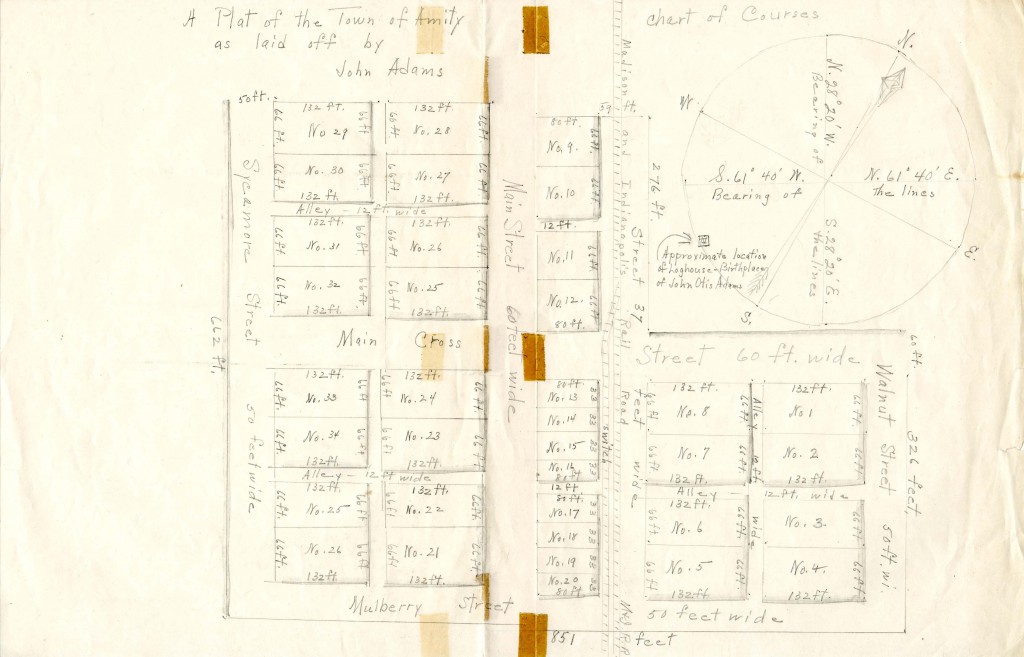 A Plat of the Town of Amity
as laid off by
John Adams
chart of Courses
N.
W
E.
S.
N. 28° 20' W.
Bearing of
S. 61° 40' W.
Bearing of
N. 61° 40' E.
the lines
S. 28° 20' E.
the lines
Approximate location
of Loghouse - Birthplace
of John Otis Adams
50ft.
132 ft.
66 ft.
No 29
66 ft
132 ft
66 ft
No. 28
66 ft
66 ft
No. 30
66 ft
132 ft.
66 ft
No. 27
66 ft
132 ft.
Alley - 12 ft. wide
132 ft.
66 ft
No. 31
132 ft.
66 ft
No. 26
66 ft
66 ft.
No. 32
132 ft.
66 ft
No. 25
66 ft
132 ft.
Sycamore Street 50 feet wide
662 ft.
Main Cross
Street 60 ft. wide
132 ft.
66 ft.
No. 33
66 ft
132 ft.
66 ft
No. 24
66 ft
66 ft.
No. 34
66 ft
132 ft.
No. 23
66 ft
132 ft.
Alley - 12 ft wide
132 ft.
66 ft
No. 25
66 ft
132 ft.
66 ft
No. 22
66 ft.
66 ft.
No. 26
66 ft
132 ft.
66 ft
No. 21
66 ft
132 ft.
Mulberry Street
50 feet wide
851 feet
Main Street 60 feet wide
80 ft.
No. 9.
66 ft.
No. 10
66 ft
12 ft.
No. 11
66 ft.
No. 12.
66 ft
80 ft.
80 ft
No. 13
33
No. 14
33
No. 15
33
No. 16
33
80 ft
12 ft
80 ft.
No. 17
33
No. 18
33
No. 19
33
No. 20
33
80 ft
59 ft.
Madison and Indianapolis Rail Road
switch
M & I R.R.
276 ft.
Street 37 feet wide
132 ft.
66 ft
No. 8
66 ft.
132 ft.
No 1
66 ft
66 ft
No. 7
66 ft.
132 ft.
No. 2
66 ft.
132 ft.
Alley
wide
Alley - 12 ft. wide
132 ft.
66 ft
No. 6
66 ft
No. 3
66 ft.
66 ft
No. 5
66 ft.
132 ft
No. 4.
66 ft.
132 ft.
Walnut Street 50 ft. wi.
60 ft.
326 feet,